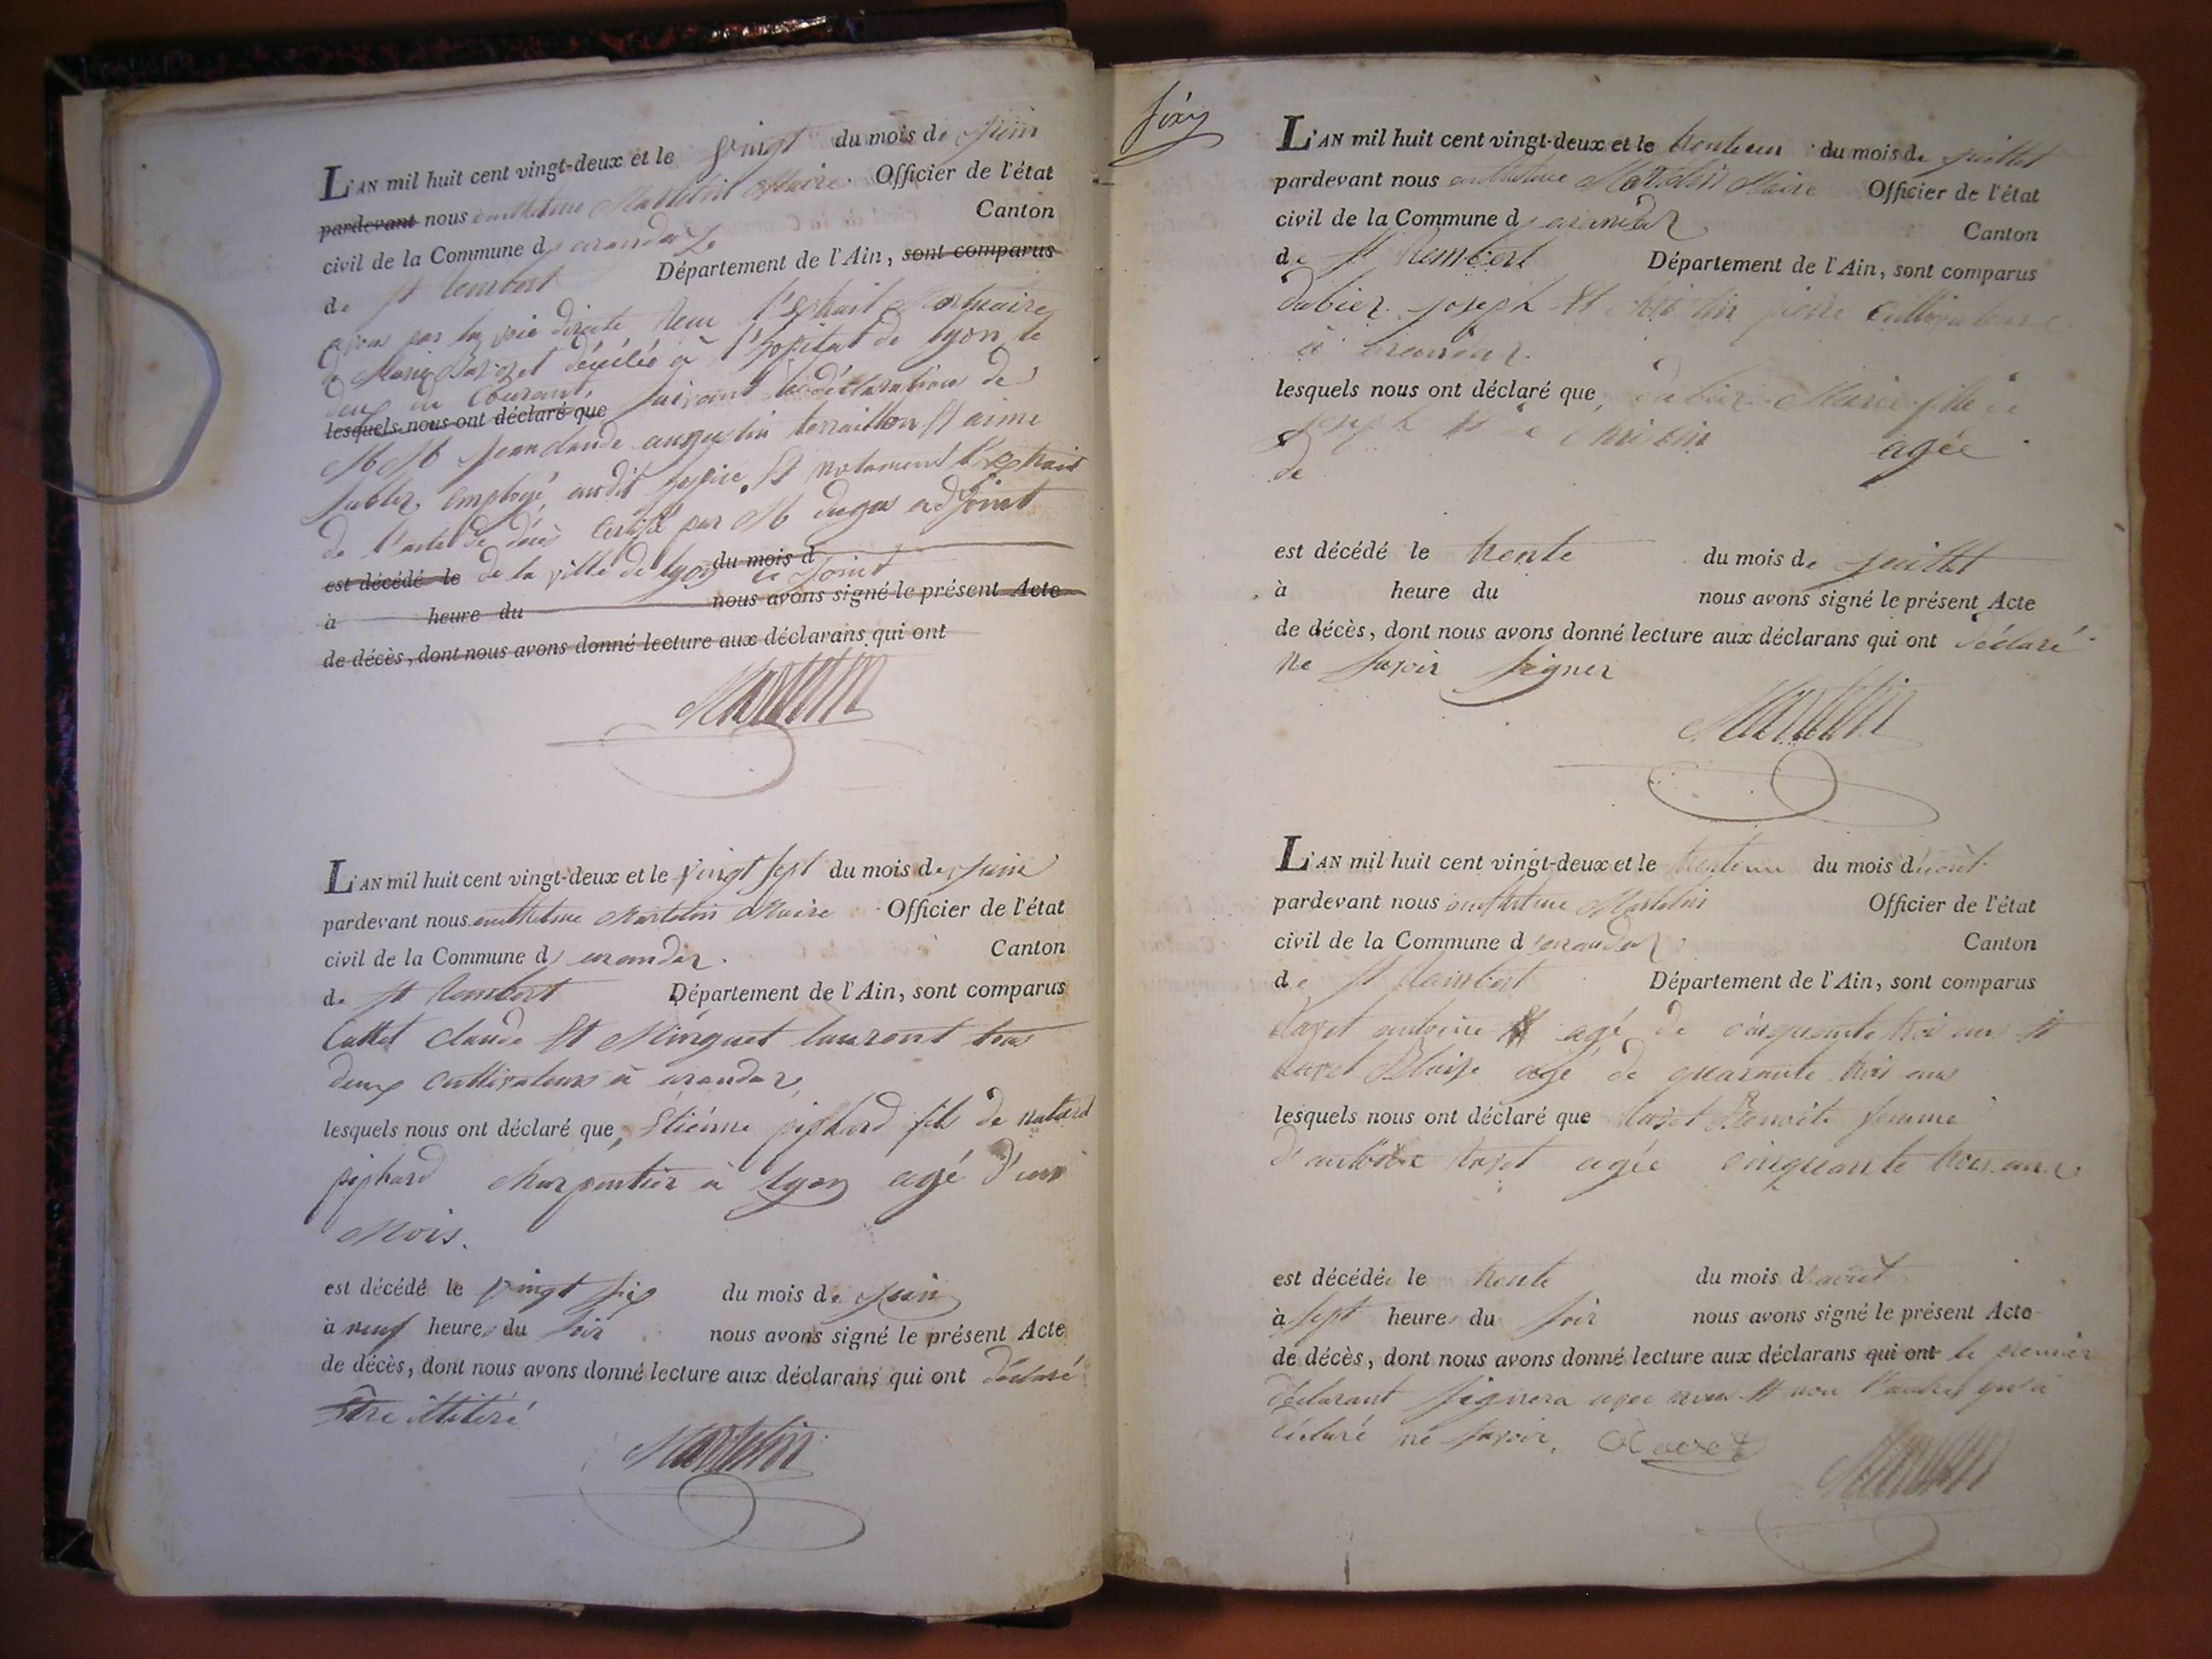 L'AN mil huit cent vingt-deux et le vingt du mois de juin
pardevant nous Martelin Maire Officier de l'état
civil de la Commune d'arandaz Canton
de st rembert Département de l'Ain, sont comparus
avons par la voie directe reçu l'Extrait Mortuaire
de Marie décédée à l'hopital de lyon le
deux du Courant,
lesquels nous ont déclaré que suivant la déclaration de
MM jean claude augustin terraillon Et aimé
employé audit hospice, Et notament l'Extrait
de l'acte de décès Certifié par M dugas adjoint
est décédé le de la ville de lyon du mois d
à heure du nous avons signé le présent Acte
de décès, dont nous avons donné lecture aux déclarans qui ont
Martelin
L'AN mil huit cent vingt-deux et le vingt sept du mois de juin
pardevant nous Martelin Maire Officier de l'état
civil de la Commune d arandaz. Canton
de st rembert Département de l'Ain, sont comparus
Cattet claude Et Minguet laurent tous
deux cultivateurs à arandaz,
lesquels nous ont déclaré que, Etiénne fils de
charpentier à lyon agé d'un
Mois.
est décédé le vingt six du mois de juin
à neuf heures du soir nous avons signé le présent Acte
de décès, dont nous avons donné lecture aux déclarans qui ont déclaré
être illitéré
Martelin
L'AN mil huit cent vingt-deux et le trente un du mois de juillet
pardevant nous Martelin Maire Officier de l'état
civil de la Commune d arandaz Canton
de st Rembert Département de l'Ain, sont comparus
dubiez joseph Et pierre Cultivateurs
à arandaz.
lesquels nous ont déclaré que, dubiez Marie fille de
joseph Et agée
de
est décédé le trente du mois de juillet
à heure du nous avons signé le présent Acte
de décès, dont nous avons donné lecture aux déclarans qui ont déclaré
ne savoir signer
Martelin
L'AN mil huit cent vingt-deux et le trente un du mois d'août
pardevant nous Martelin Officier de l'état
civil de la Commune d arandaz Canton
de st Rambert Département de l'Ain, sont comparus
antoine agé de cinquante trois ans Et
Blaise agé de quarante trois ans
lesquels nous ont déclaré que Benoîte femme
d'antoine agée cinquante trois ans
est décédée le trente du mois d'août
à sept heures du soir nous avons signé le présent Acte
de décès, dont nous avons donné lecture aux déclarans qui ont le premier
déclarant signera avec nous Et non l'autre qui a
déclaré ne savoir.
Martelin